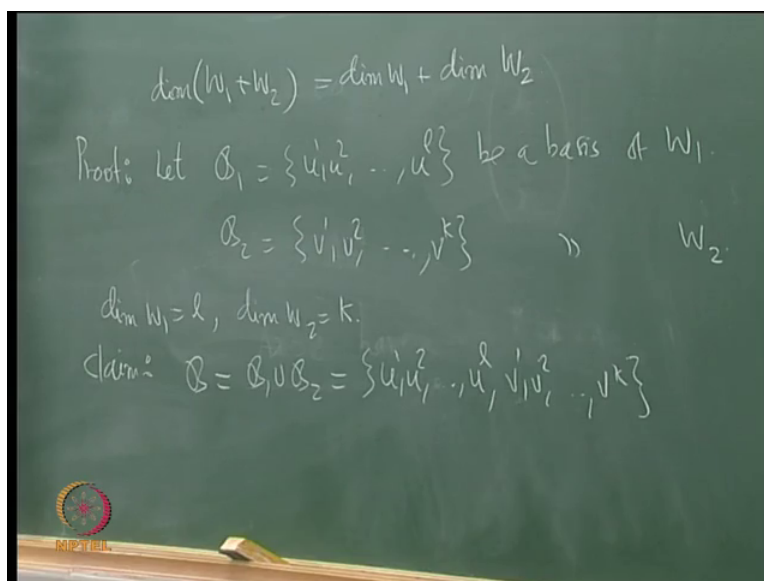 dim(W₁+W₂) = dim W₁ + dim W₂
Proof: Let ℬ₁ = {u¹, u², .., uˡ} be a basis of W₁.
ℬ₂ = {v¹, v², .., vᵏ} " W₂.
dim W₁ = l, dim W₂ = k.
Claim: ℬ = ℬ₁ ∪ ℬ₂ = {u¹, u², .., uˡ, v¹, v², .., vᵏ}
NPTEL